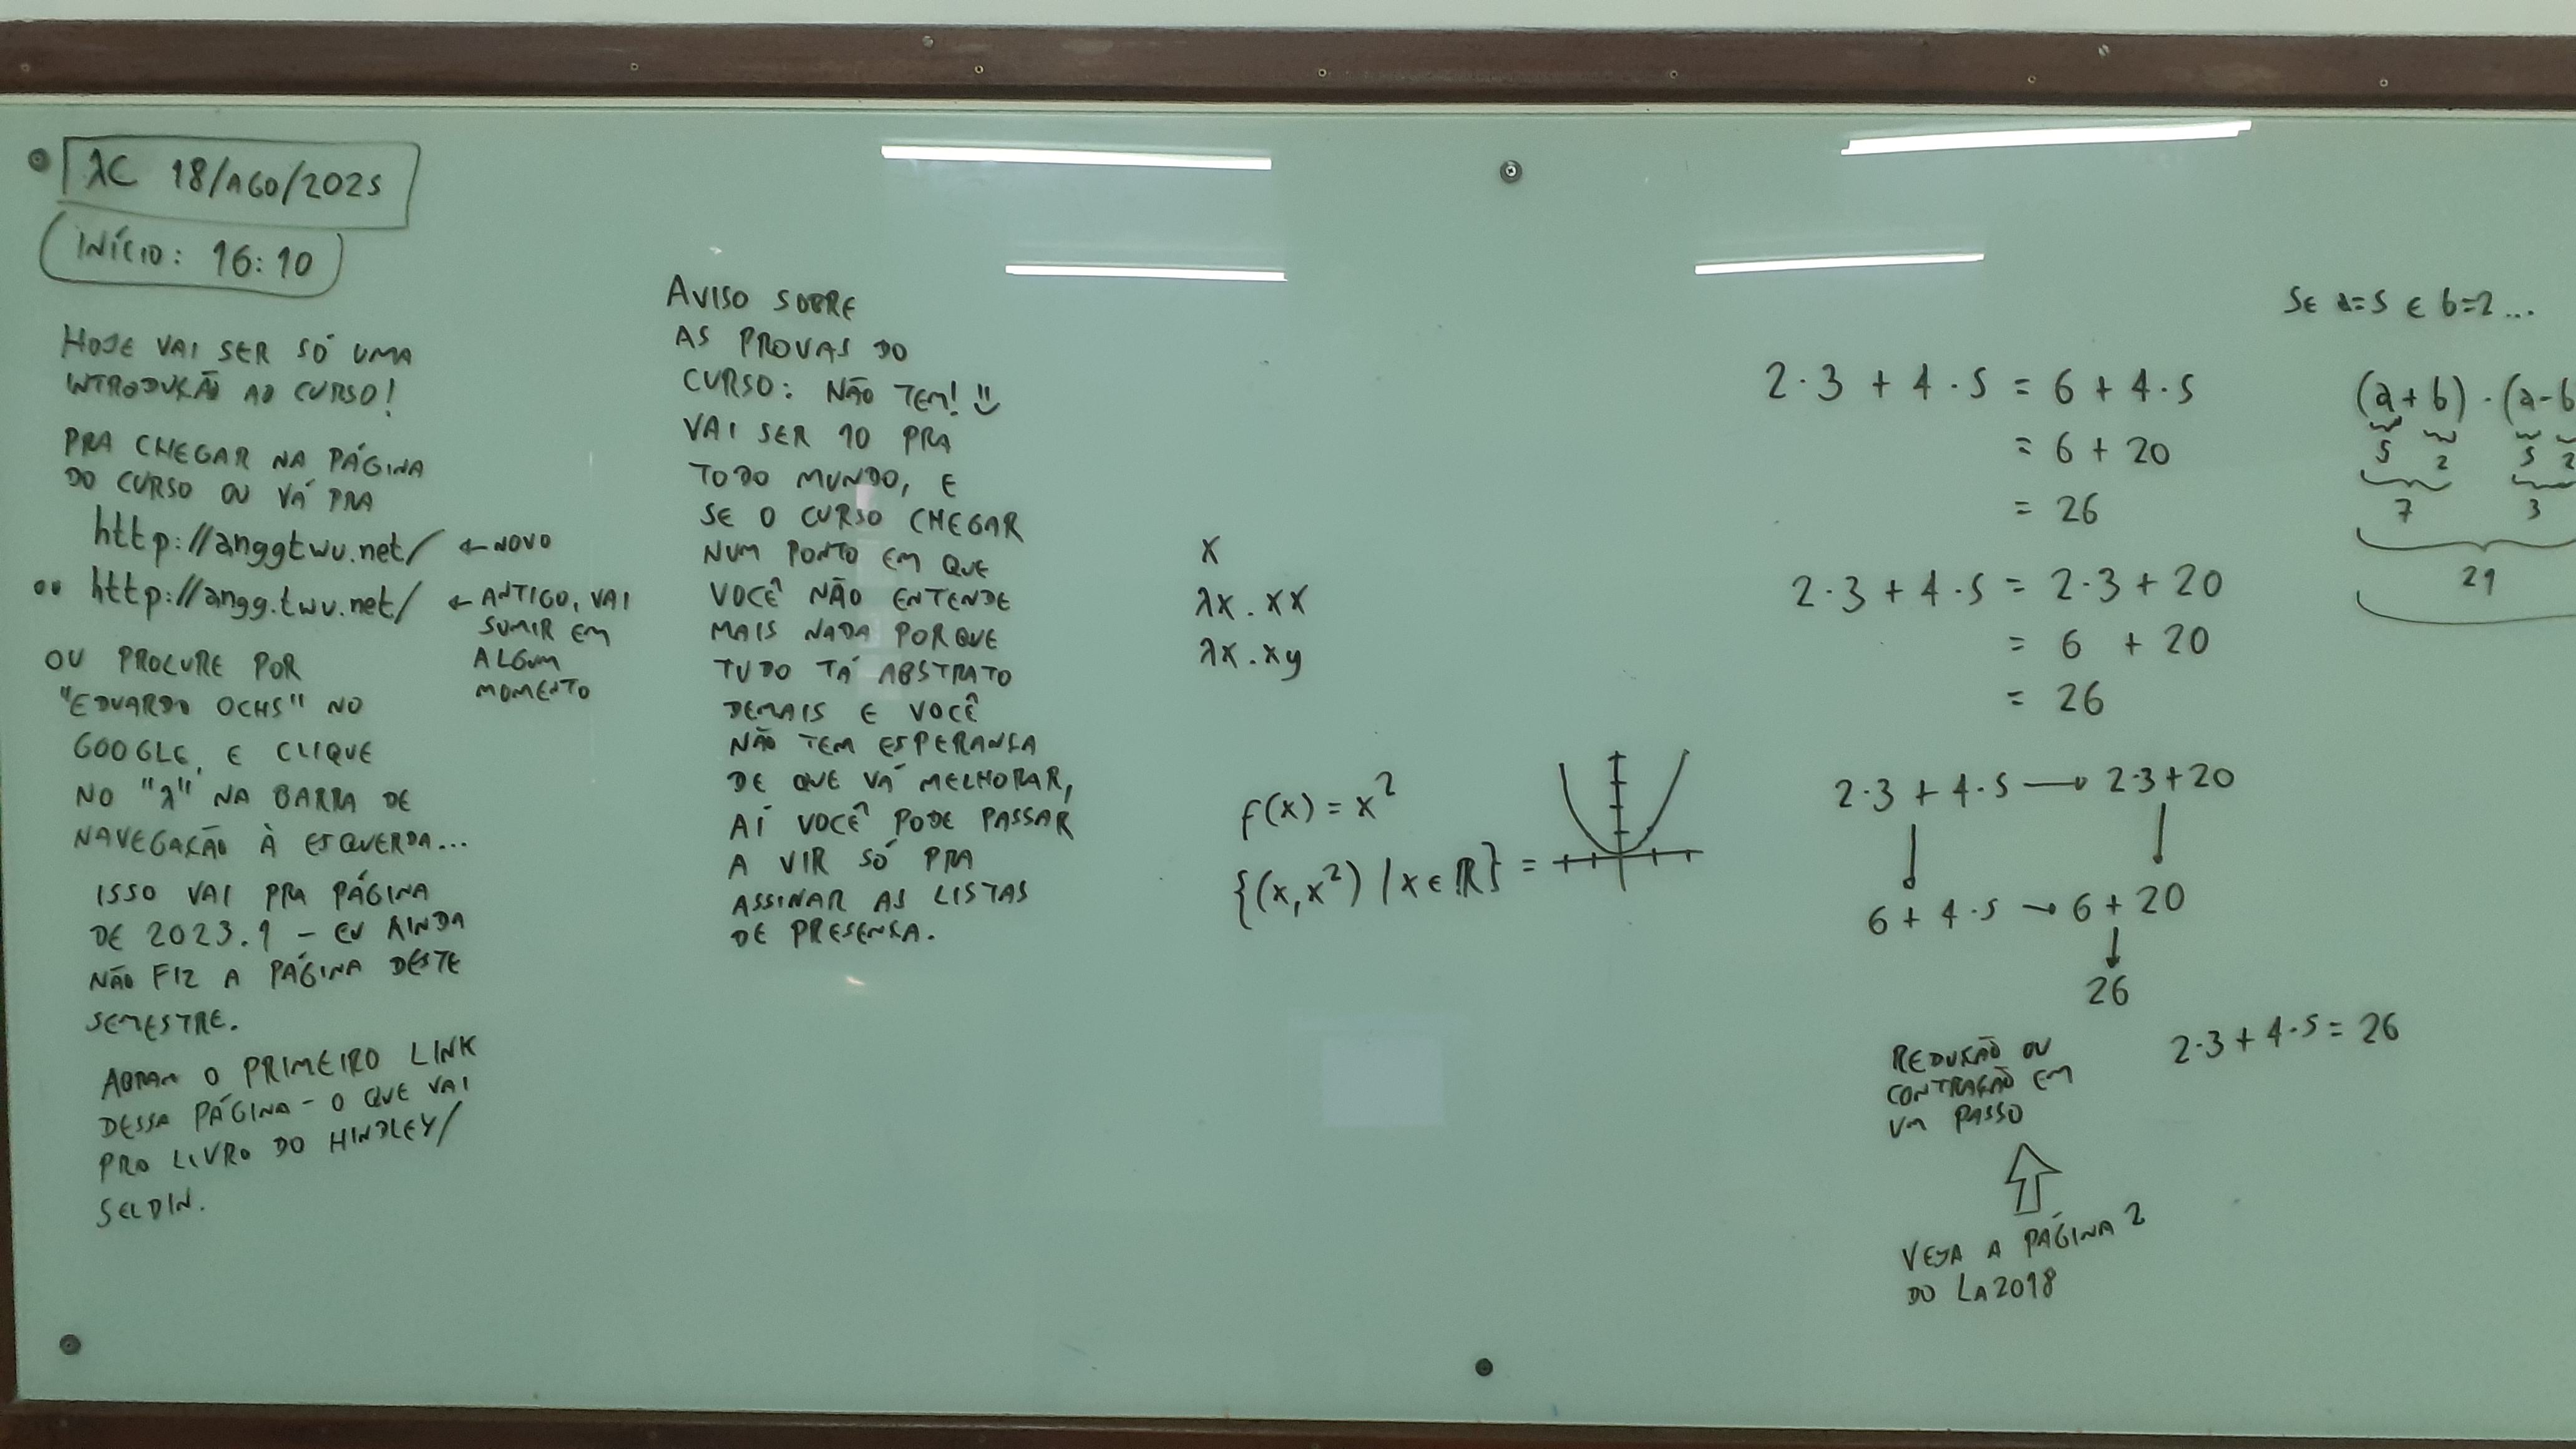 λC 18/AGO/2025
INÍCIO: 16:10
HOJE VAI SER SÓ UMA
INTRODUÇÃO AO CURSO!
PRA CHEGAR NA PÁGINA
DO CURSO OU VÁ PRA
http://anggtwu.net/ ← NOVO
ou http://angg.twu.net/ ← ANTIGO, VAI
SUMIR EM
ALGUM
MOMENTO
OU PROCURE POR
"EDUARDO OCHS" NO
GOOGLE, E CLIQUE
NO "λ" NA BARRA DE
NAVEGAÇÃO À ESQUERDA...
ISSO VAI PRA PÁGINA
DE 2023.1 – EU AINDA
NÃO FIZ A PÁGINA DESTE
SEMESTRE.
ABRAM O PRIMEIRO LINK
DESSA PÁGINA – O QUE VAI
PRO LIVRO DO HINDLEY/
SELDIN.
AVISO SOBRE
AS PROVAS DO
CURSO: NÃO TEM!
VAI SER 10 PRA
TODO MUNDO, E
SE O CURSO CHEGAR
NUM PONTO EM QUE
VOCÊ NÃO ENTENDE
MAIS NADA PORQUE
TUDO TÁ ABSTRATO
DEMAIS E VOCÊ
NÃO TEM ESPERANÇA
DE QUE VÁ MELHORAR,
AÍ VOCÊ PODE PASSAR
A VIR SÓ PRA
ASSINAR AS LISTAS
DE PRESENÇA.
x
λx.xx
λx.xy
f(x) = x²
{(x,x²) | x ∈ ℝ} =
2·3 + 4·5 = 6 + 4·5
= 6 + 20
= 26
2·3 + 4·5 = 2·3 + 20
= 6 + 20
= 26
2·3 + 4·5 → 2·3 + 20
↓ ↓
6 + 4·5 → 6 + 20
↓
26
2·3 + 4·5 = 26
REDUÇÃO OU
CONTRAÇÃO EM
UM PASSO
VEJA A PÁGINA 2
DO LA2018
SE a=5 E b=2...
(a+b)·(a-b
5 2 5 2
7 3
21